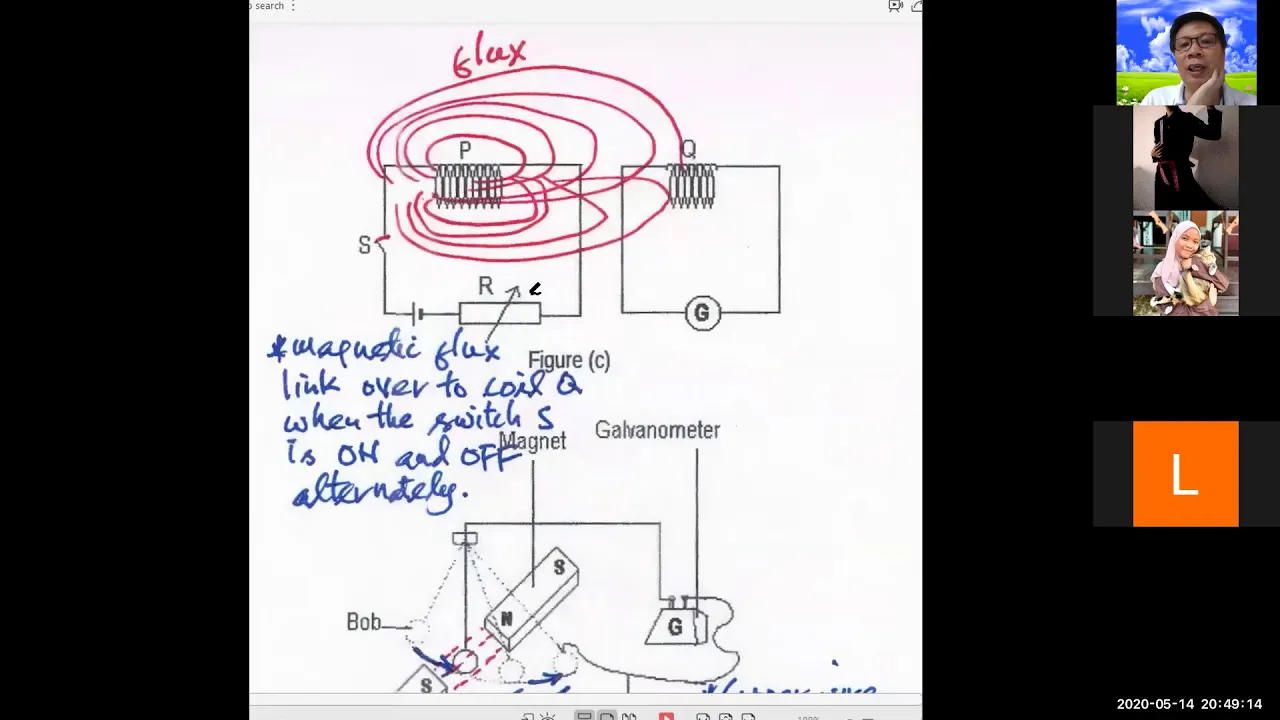 search
flux
P
Q
S
R
G
* magnetic flux
link over to coil Q
when the switch S
is ON and OFF
alternately.
Figure (c)
Magnet
Galvanometer
S
N
Bob
G
S
L
2020-05-14 20:49:14